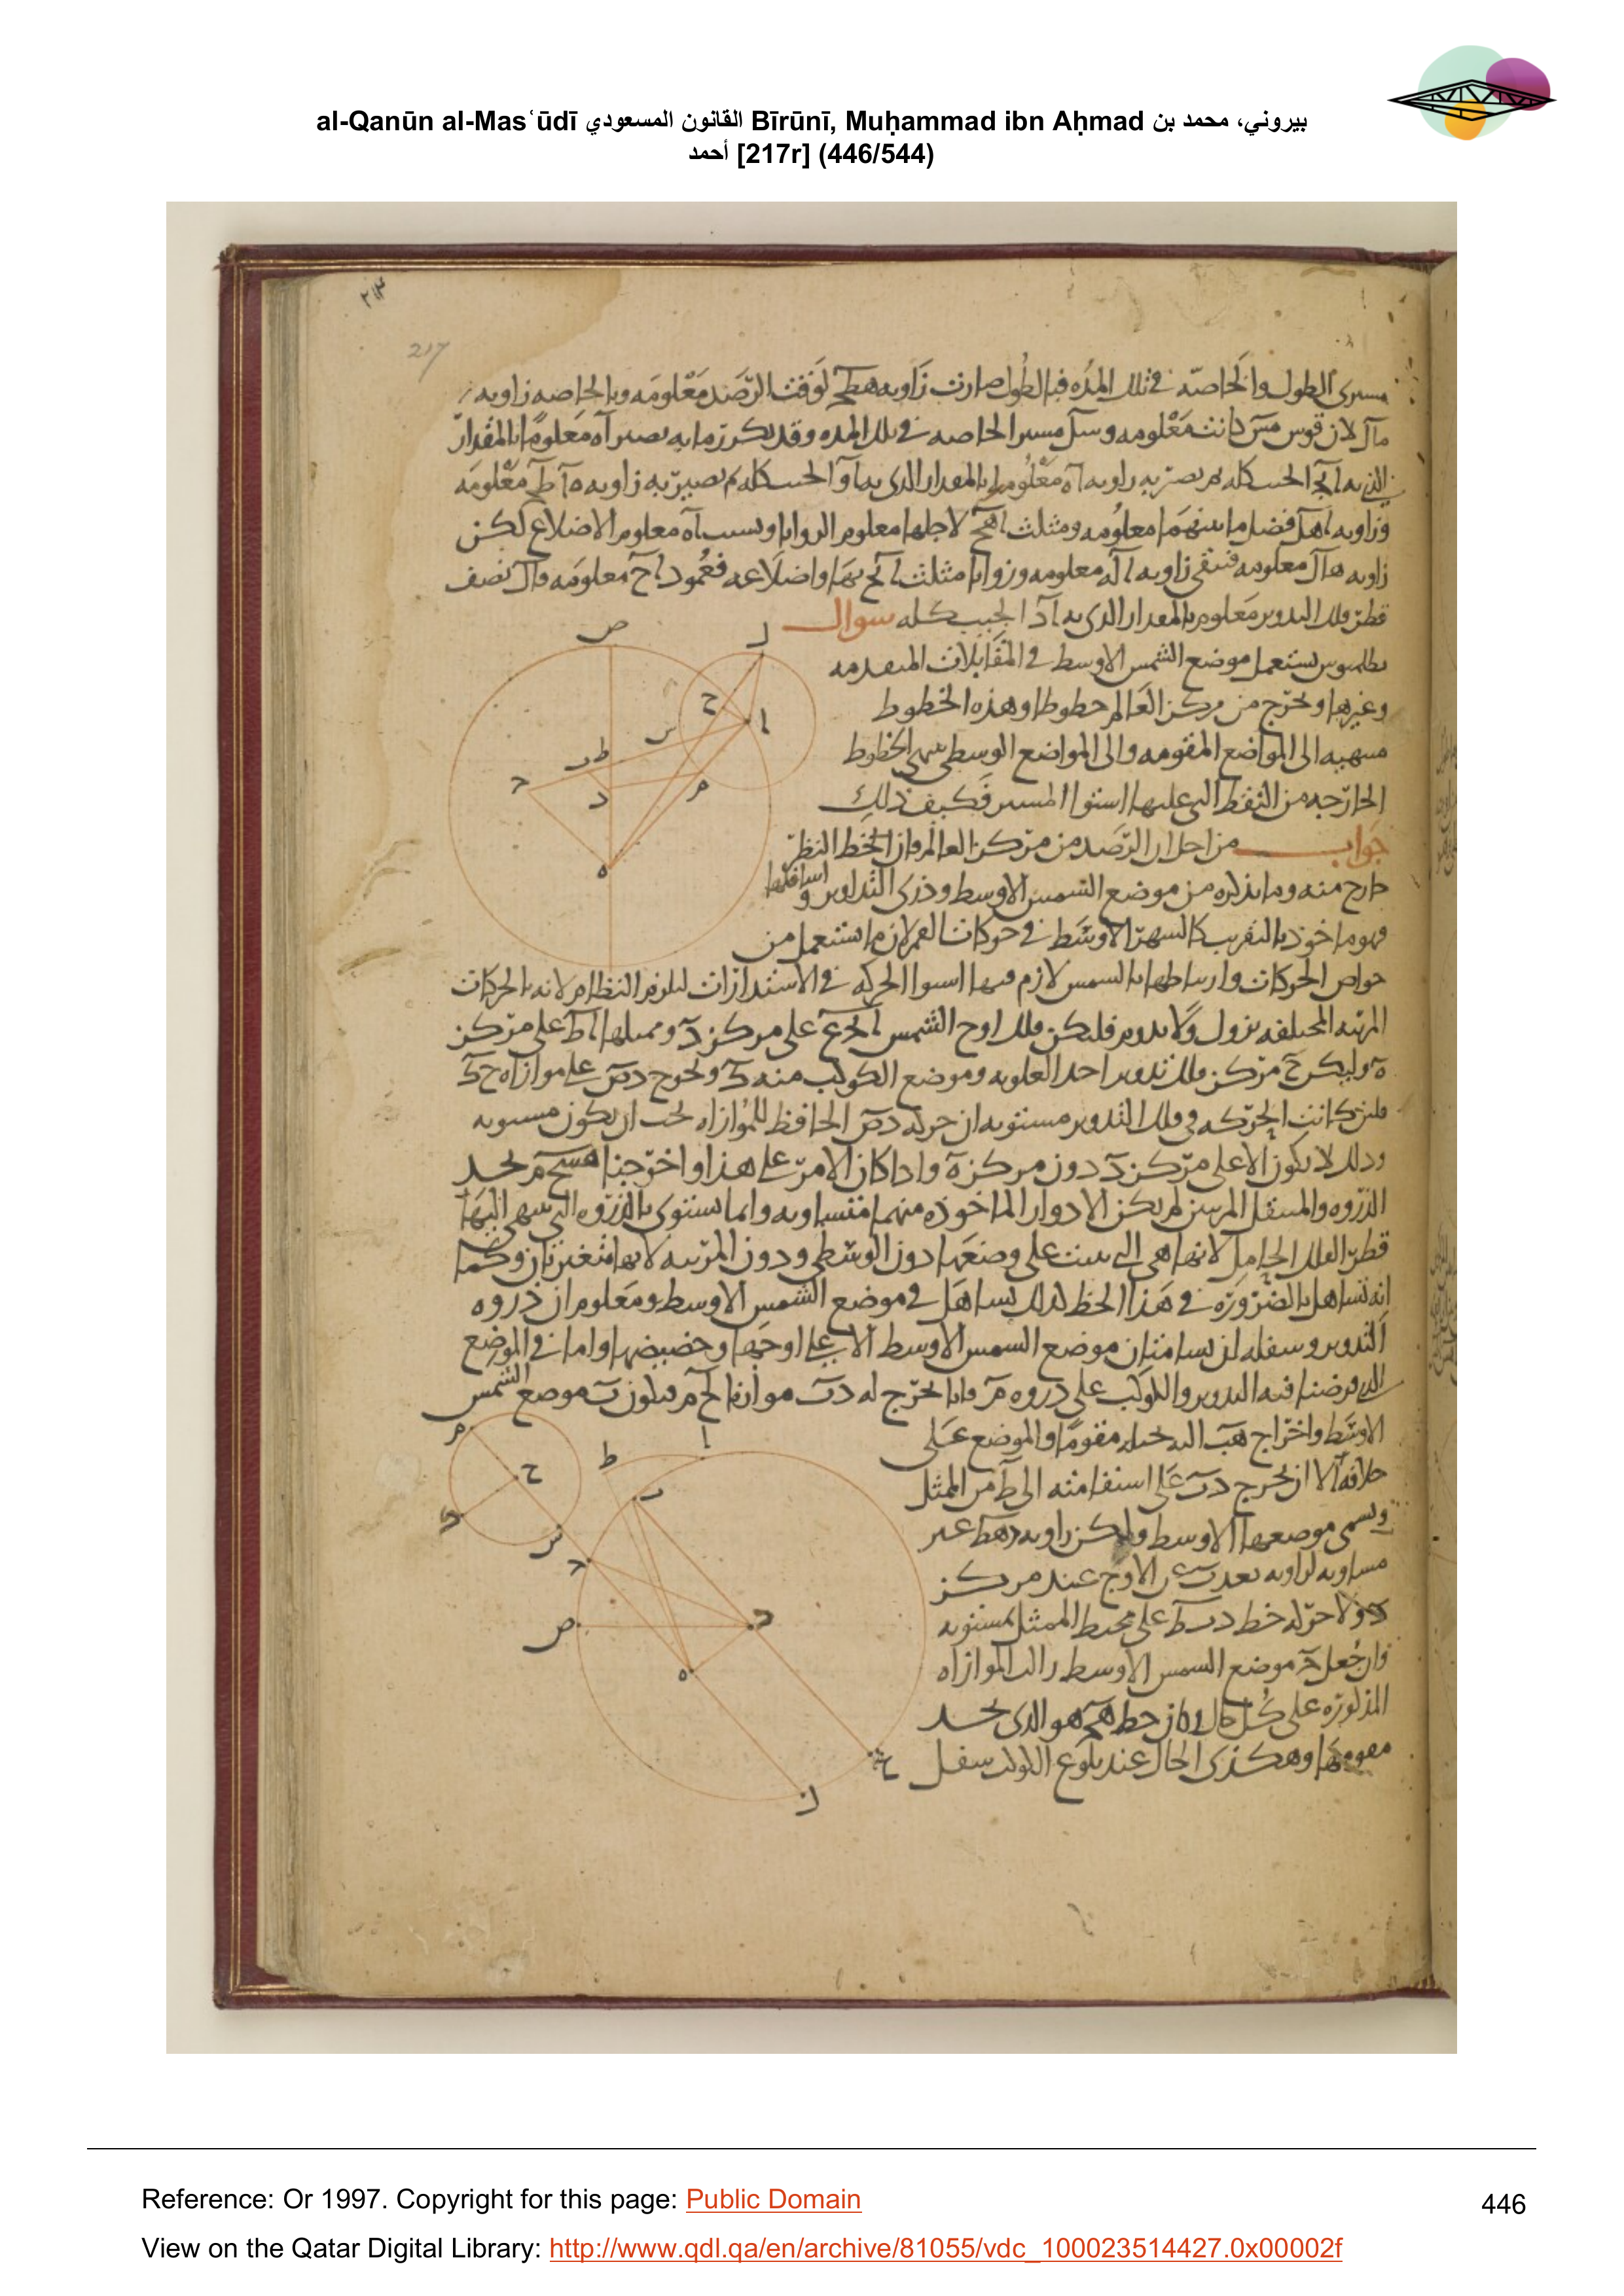 al-Qanūn al-Masʿūdī القانون المسعودي Bīrūnī, Muḥammad ibn Aḥmad بيروني، محمد بن
أحمد [217r] (446/544)
٢١٣
217
مسيرى الطول والخاصه فى تلك المده فبالطول صارت زاويه هطح لوقت الرصد معلومه وبالخاصه زاويه
مال لان قوس مس كانت معلومه وسل مسير الخاصه فى تلك المده وقد تكرر ما به يصير اه معلوما بالمقدار
الذى به اح الجيب كله ثم تصير به زاويه اه معلومه بالمقدار الذى به او الجيب كله ثم تصير به زاويه ه اط معلومه
وزاويه اهل فضل ما بينهما معلومه ومثلث اهح لاجلها معلوم الزوايا وبسبب اه معلوم الاضلاع لكن
زاويه هال معلومه فتبقى زاويه اله معلومه وزوايا مثلث الح بها واضلاعه فعمود اح معلومه وال نصف
قطر فلك التدوير معلوم بالمقدار الذى به اد الجيب كله سوال
بطلميوس يستعمل موضع الشمس الاوسط فى المقابلات المتقدمه
وغيرها ويخرج من مركز العالم خطوطا وهذه الخطوط
منتهيه الى المواضع المقومه والى المواضع الوسطى تنتهى الخطوط
الخارجه من النقط التى عليها استوا المسير فكيف ذلك
جواب من اجل ان الرصد من مركز العالم فان الخط النظر
خارج منه وما يذكره من موضع الشمس الاوسط وذرى التداوير واسافلها
فهو ماخوذ بالتقريب كالشهر الاوسط فى حركات القمر لان ما استعمل من
خواص الحركات وارتباطها بالشمس لازم فيها استوا الحركه فى الاستدارات ليلزم النظام لانه بالحركات
المرئيه المختلفه يزول ولا يدوم فليكن فلك اوج الشمس ابحع على مركز د وممثلها اط على مركز
ه وليكن ح مركز فلك تدوير احد العلويه وموضع الكوكب منه ك ونخرج دص على موازاه ح ك
فلئن كانت الحركه فى فلك التدوير مستويه ان حركه دص الحافظ للموازاه يجب ان يكون مستويه
وذلك لا يكون الا على مركز د دون مركز ه واذا كان الامر على هذا واخرجنا هسحم لتحد
الذروه والسفل المرئيين لم يكن الادوار الماخوذه منهما متساويه وانما يستوى بالذروه التى ينتهى اليها
قطر الفلك الحامل لانها هى التى بنيت على وضعها دون الوسطى ودون المرئيه لانهما متغيرتان وكما
انه تساهل بالضروره فى هذا الخط كذلك تساهل فى موضع الشمس الاوسط ومعلوم ان ذروه
التدوير وسفله لن يسامتان موضع الشمس الاوسط الا على اوجها وحضيضها واما فى الموضع
الذى فرضنا فيه التدوير والكوكب على ذروه م فانا نخرج له دب موازيا لحم فيكون ب موضع الشمس
الاوسط واخراج هب اليه مقوما والموضع على
خلافه الا ان يخرج دب على استقامته الى ط من الممثل
ويسمى موضعها الاوسط ولم يكن زاويه دهط غير
مساويه لزاويه بعد ب عن الاوج عند مركز
د ولا حركه خط دبط على محيط الممثل مستويه
وان جعل ح موضع الشمس الاوسط زالت الموازاه
المذكوره على كل حال وكان خط هح هو الذى يحد
مقومها وهكذى الحال عند بلوغ الكوكب سفل
Reference: Or 1997. Copyright for this page: Public Domain
446
View on the Qatar Digital Library: http://www.qdl.qa/en/archive/81055/vdc_100023514427.0x00002f